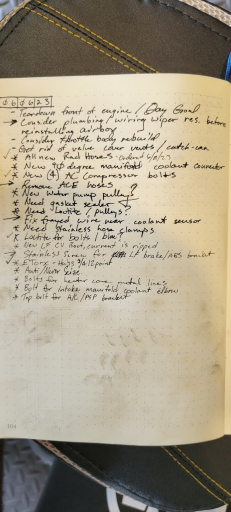 060623
- Teardown front of engine / Day Good
→ Consider plumbing / wiring wiper res. before
reinstalling airbox
- Consider throttle body rebuild
- Got rid of valve cover vents / catch-can
* All new Rad Hoses - ordered 4/8/23
* New 90 degree manifold coolant connector
* New (4) AC Compressor bolts
→ Remove ACE hoses ?
* New Water pump pulley
* Need gasket sealer
* Need Loctite / pulleys?
→ Fix frayed wire near coolant sensor
* Need Stainless hose clamps
* Loctite for bolts / blue?
- New LF CV Boot, current is ripped
? Stainless Screw for LF brake/ABS bracket
* ETorx - Hugs 3/4 12 point
* Anti / Never Seize
* Bolts for heater core metal lines
* Bolt for intake manifold coolant elbow
* Top bolt for A/C / PSP bracket